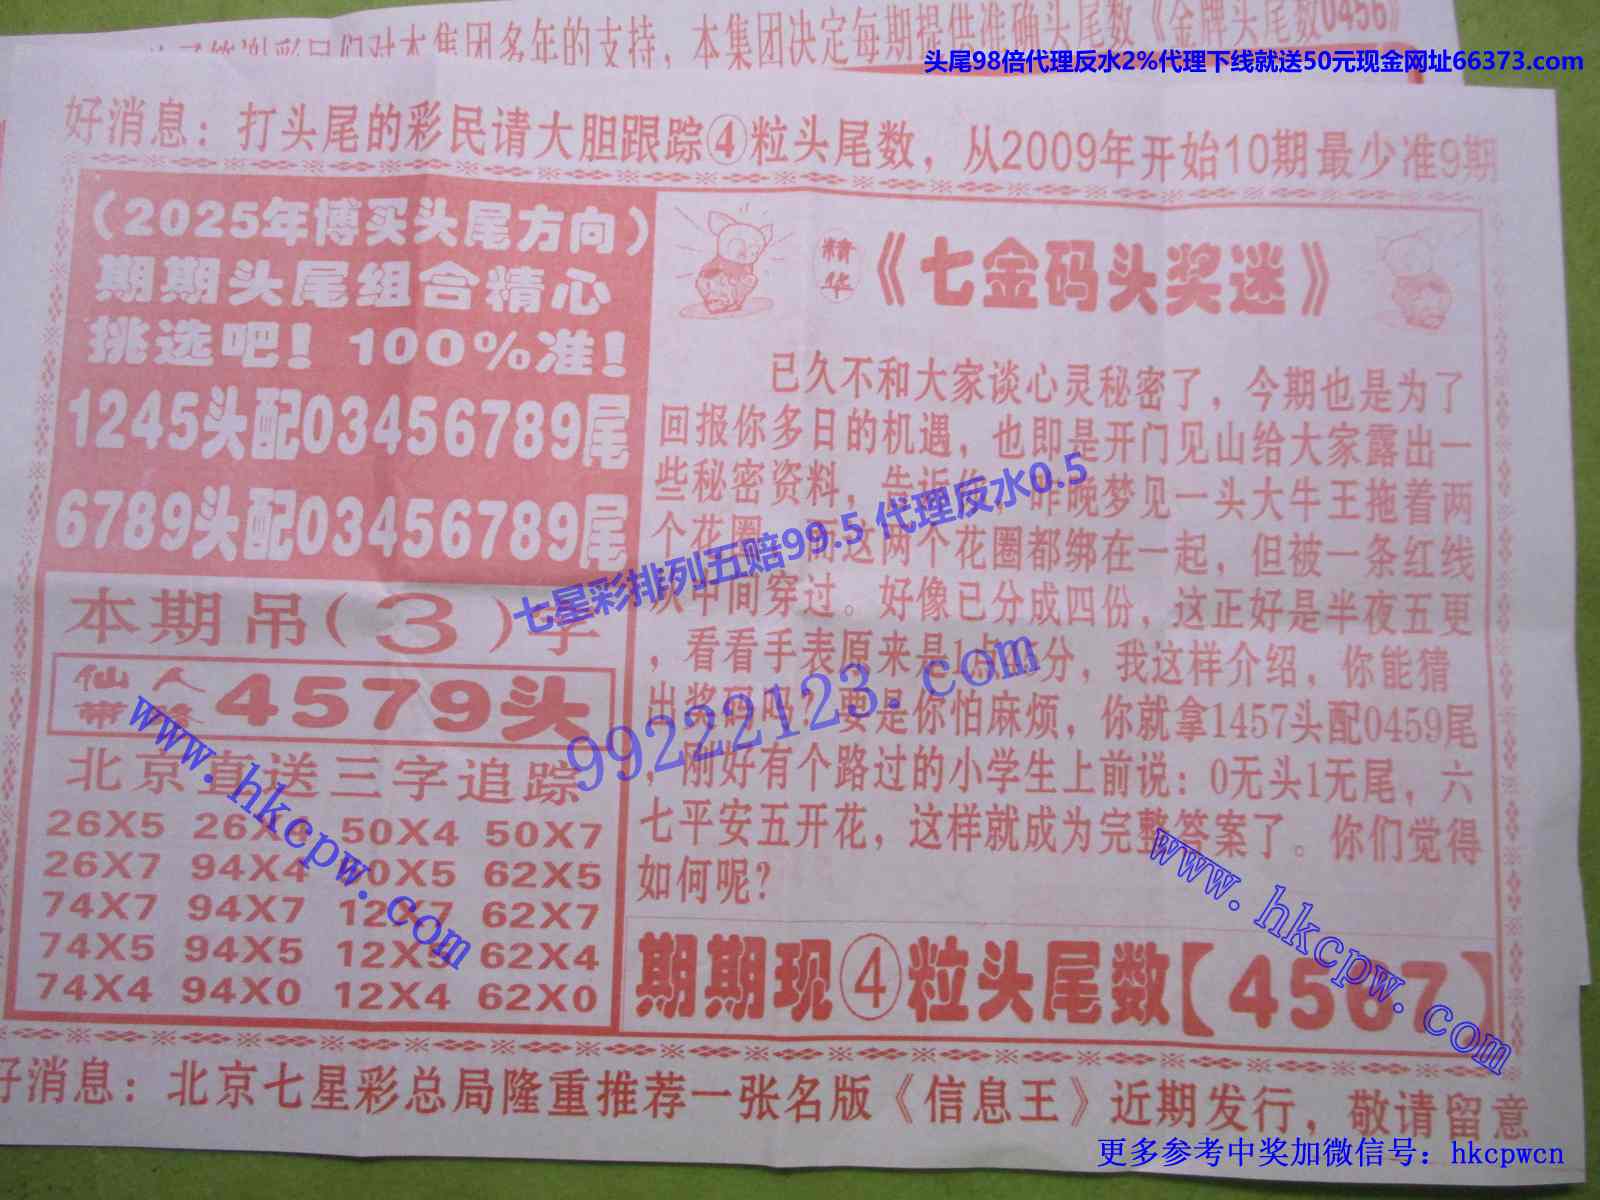 本集团决定每期提供准确头尾数《金牌头尾数0456》
头尾98倍代理反水2%代理下线就送50元现金网址66373.com
好消息：打头尾的彩民请大胆跟踪④粒头尾数，从2009年开始10期最少准9期
（2025年博买头尾方向）
期期头尾组合精心
挑选吧！100%准！
1245头配03456789尾
6789头配03456789尾
本期吊（3）字
仙人
4579头
北京直送三字追踪
26X5 26X4 50X4 50X7
26X7 94X4 50X5 62X5
74X7 94X7 12X7 62X7
74X5 94X5 12X5 62X4
74X4 94X0 12X4 62X0
精华
《七金码头奖迷》
已久不和大家谈心灵秘密了，今期也是为了
回报你多日的机遇，也即是开门见山给大家露出一
些秘密资料，告诉你，昨晚梦见一头大牛王拖着两
个花圈，而这两个花圈都绑在一起，但被一条红线
从中间穿过。好像已分成四份，这正好是半夜五更
，看看手表原来是1点分，我这样介绍，你能猜
出奖码吗？要是你怕麻烦，你就拿1457头配0459尾
，刚好有个路过的小学生上前说：0无头1无尾，六
七平安五开花，这样就成为完整答案了。你们觉得
如何呢？
期期现④粒头尾数【4567】
好消息：北京七星彩总局隆重推荐一张名版《信息王》近期发行，敬请留意
七星彩排列五赔99.5 代理反水0.5
99222123.com
www.hkcpw.com
www.hkcpw.com
更多参考中奖加微信号：hkcpwcn